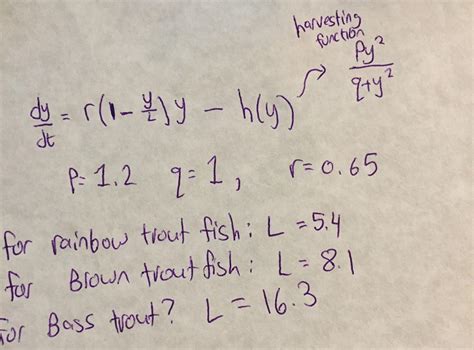 harvesting
function
py²/(q+y²)
dy/dt = r(1-y/L)y - h(y)
p=1.2 q=1, r=0.65
for rainbow trout fish: L=5.4
for Brown trout fish: L=8.1
for Bass trout? L=16.3